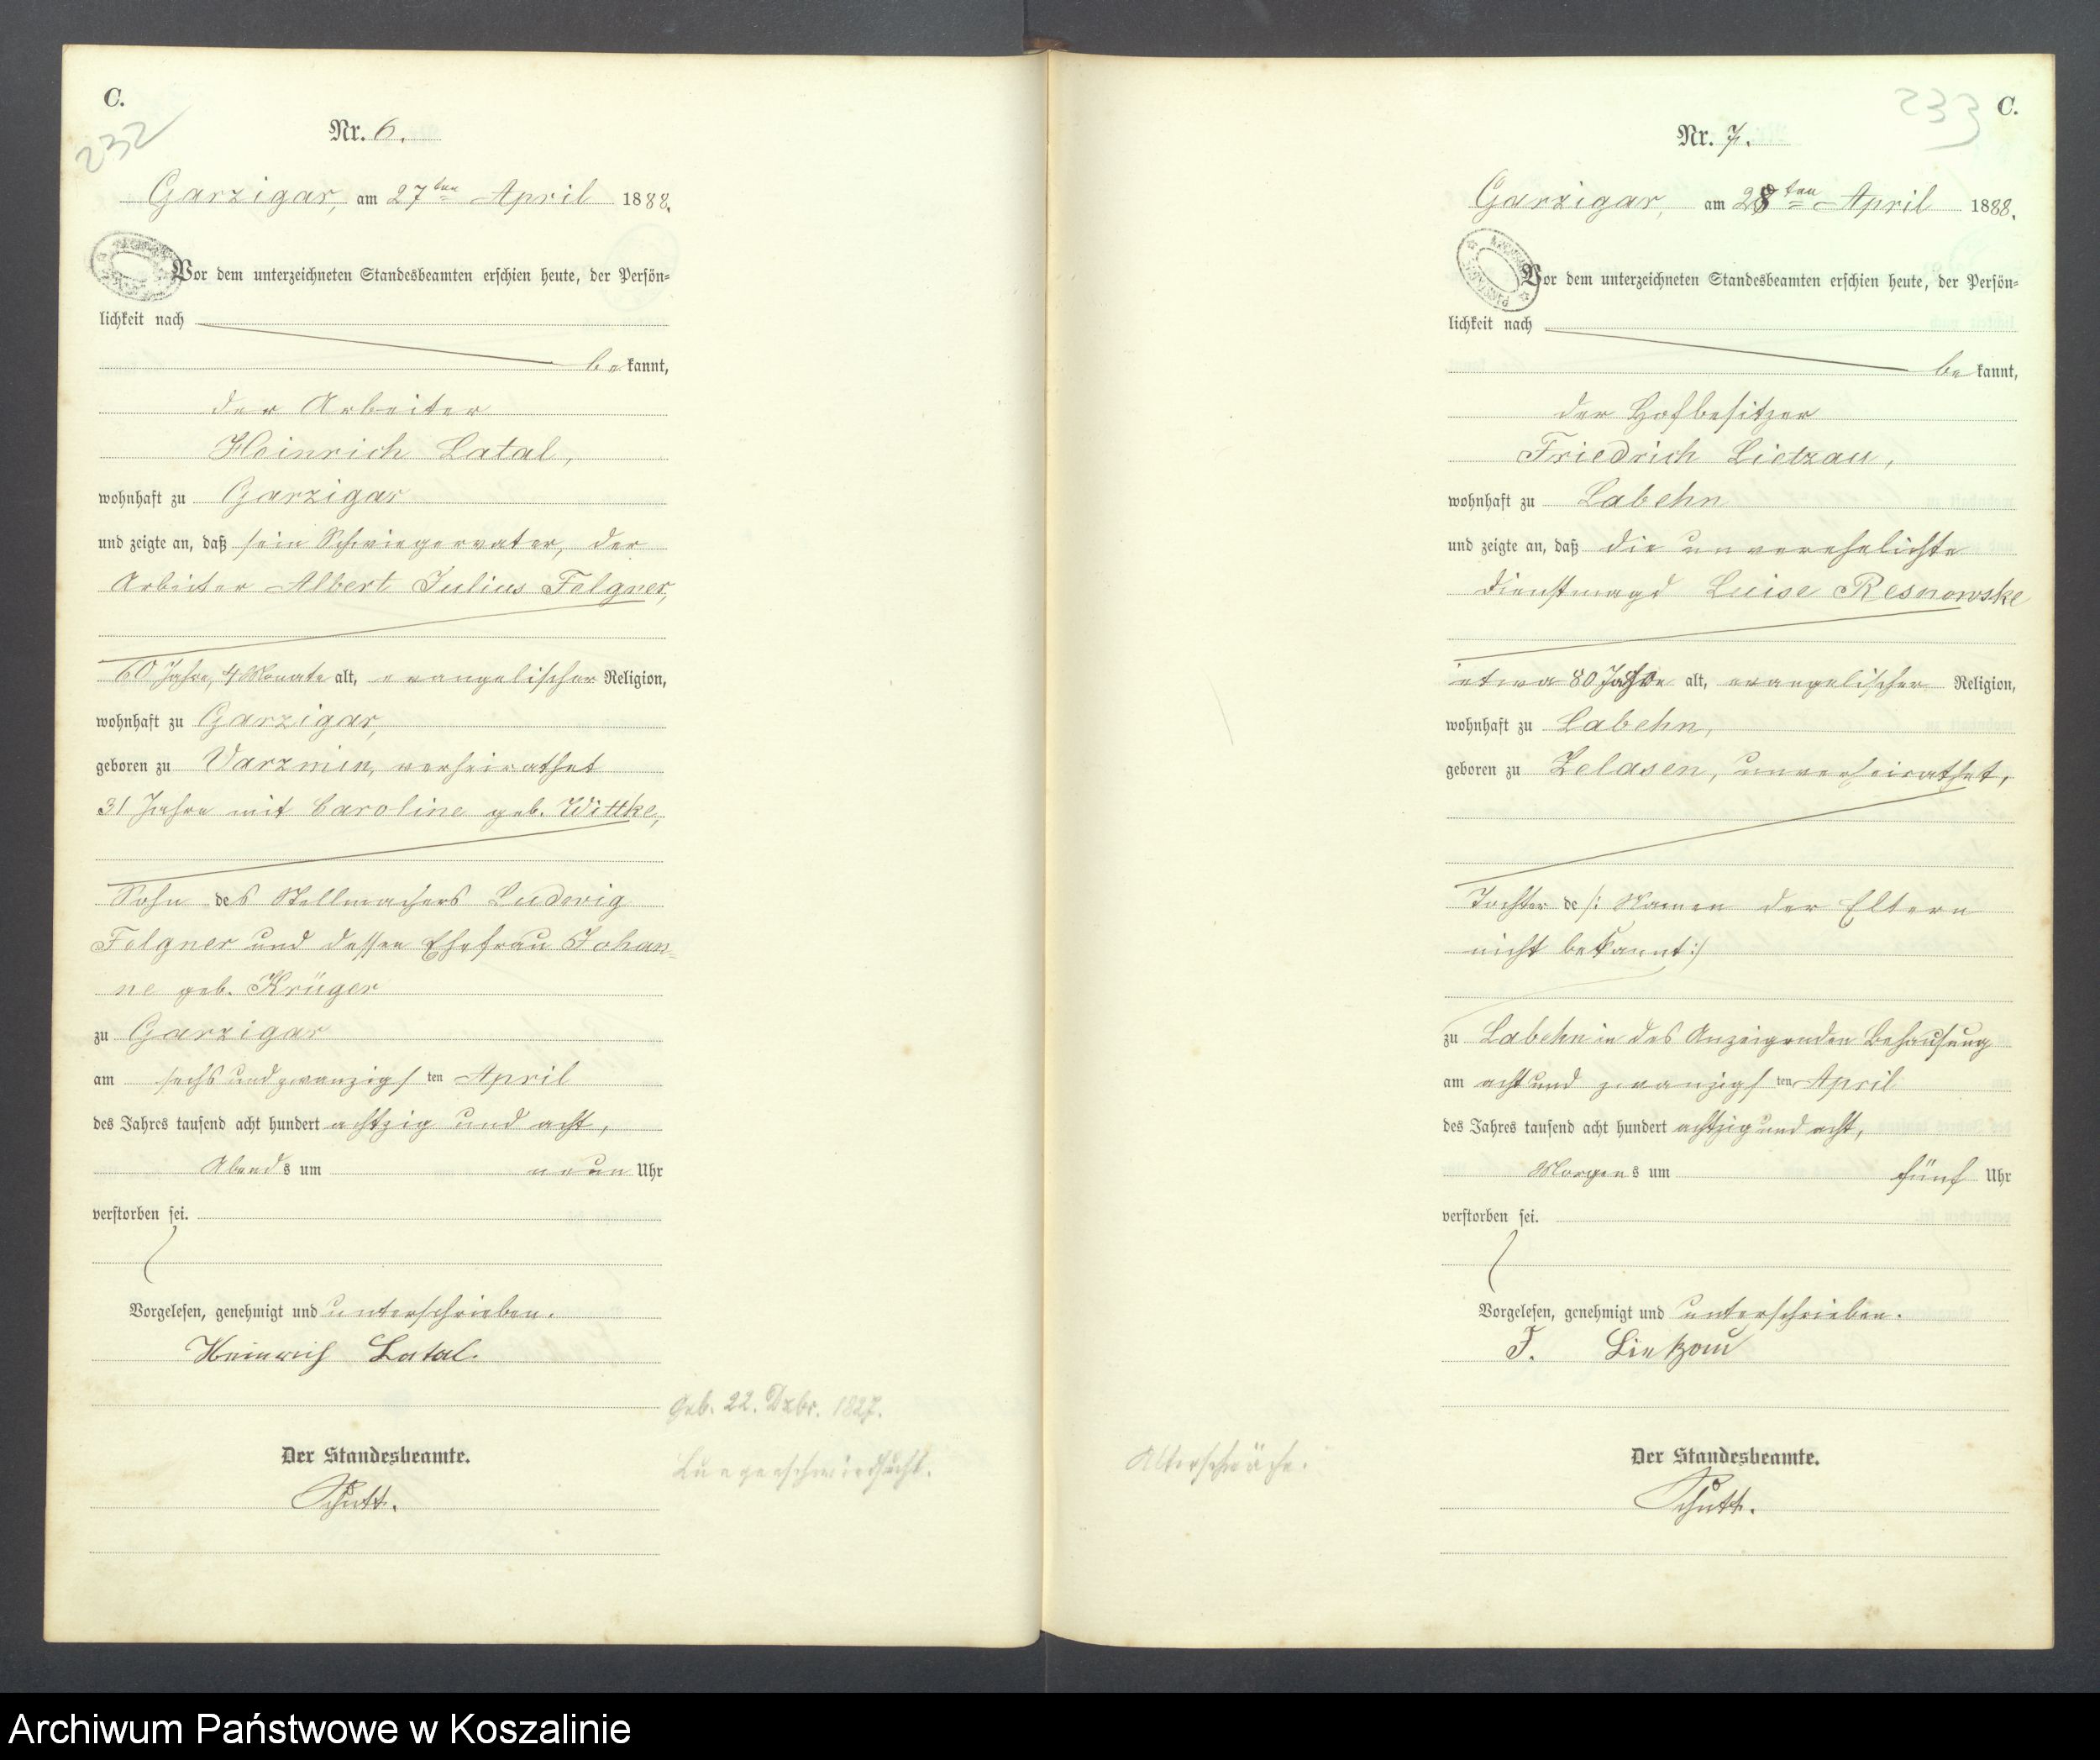 C.
232
Nr. 6.
Garzigar, am 27ten April 1888.
Vor dem unterzeichneten Standesbeamten erschien heute, der Persön-
lichkeit nach
bekannt,
der Arbeiter
Heinrich Latal,
wohnhaft zu Garzigar
und zeigte an, daß sein Schwiegervater, der
Arbeiter Albert Julius Felgner,
60 Jahre, 4 Monate alt, evangelischer Religion,
wohnhaft zu Garzigar,
geboren zu Varzmin, verheirathet
31 Jahre mit Caroline geb. Wittke,
Sohn des Stellmachers Ludwig
Felgner und dessen Ehefrau Johan-
ne geb. Krüger
zu Garzigar
am sechs und zwanzigsten April
des Jahres tausend acht hundert achtzig und acht,
Abends um neun Uhr
verstorben sei.
Vorgelesen, genehmigt und unterschrieben.
Heinrich Latal.
Geb. 22. Dzbr. 1827.
Der Standesbeamte.
Lungenschwindsucht.
Schutt.
233
C.
Nr. 7.
Garzigar, am 28ten April 1888.
Vor dem unterzeichneten Standesbeamten erschien heute, der Persön-
lichkeit nach
bekannt,
der Hofbesitzer
Friedrich Lietzau,
wohnhaft zu Labehn
und zeigte an, daß die unverehelichte
Dienstmagd Luise Resnowske
etwa 80 Jahre alt, evangelischer Religion,
wohnhaft zu Labehn,
geboren zu Zelasen, unverheirathet,
Tochter de /: Namen der Eltern
nicht bekannt :/
zu Labehn in des Anzeigenden Behausung
am acht und zwanzigsten April
des Jahres tausend acht hundert achtzig und acht,
Morgens um fünf Uhr
verstorben sei.
Vorgelesen, genehmigt und unterschrieben.
F. Lietzau
Der Standesbeamte.
Altersschwäche.
Schutt.
Archiwum Państwowe w Koszalinie